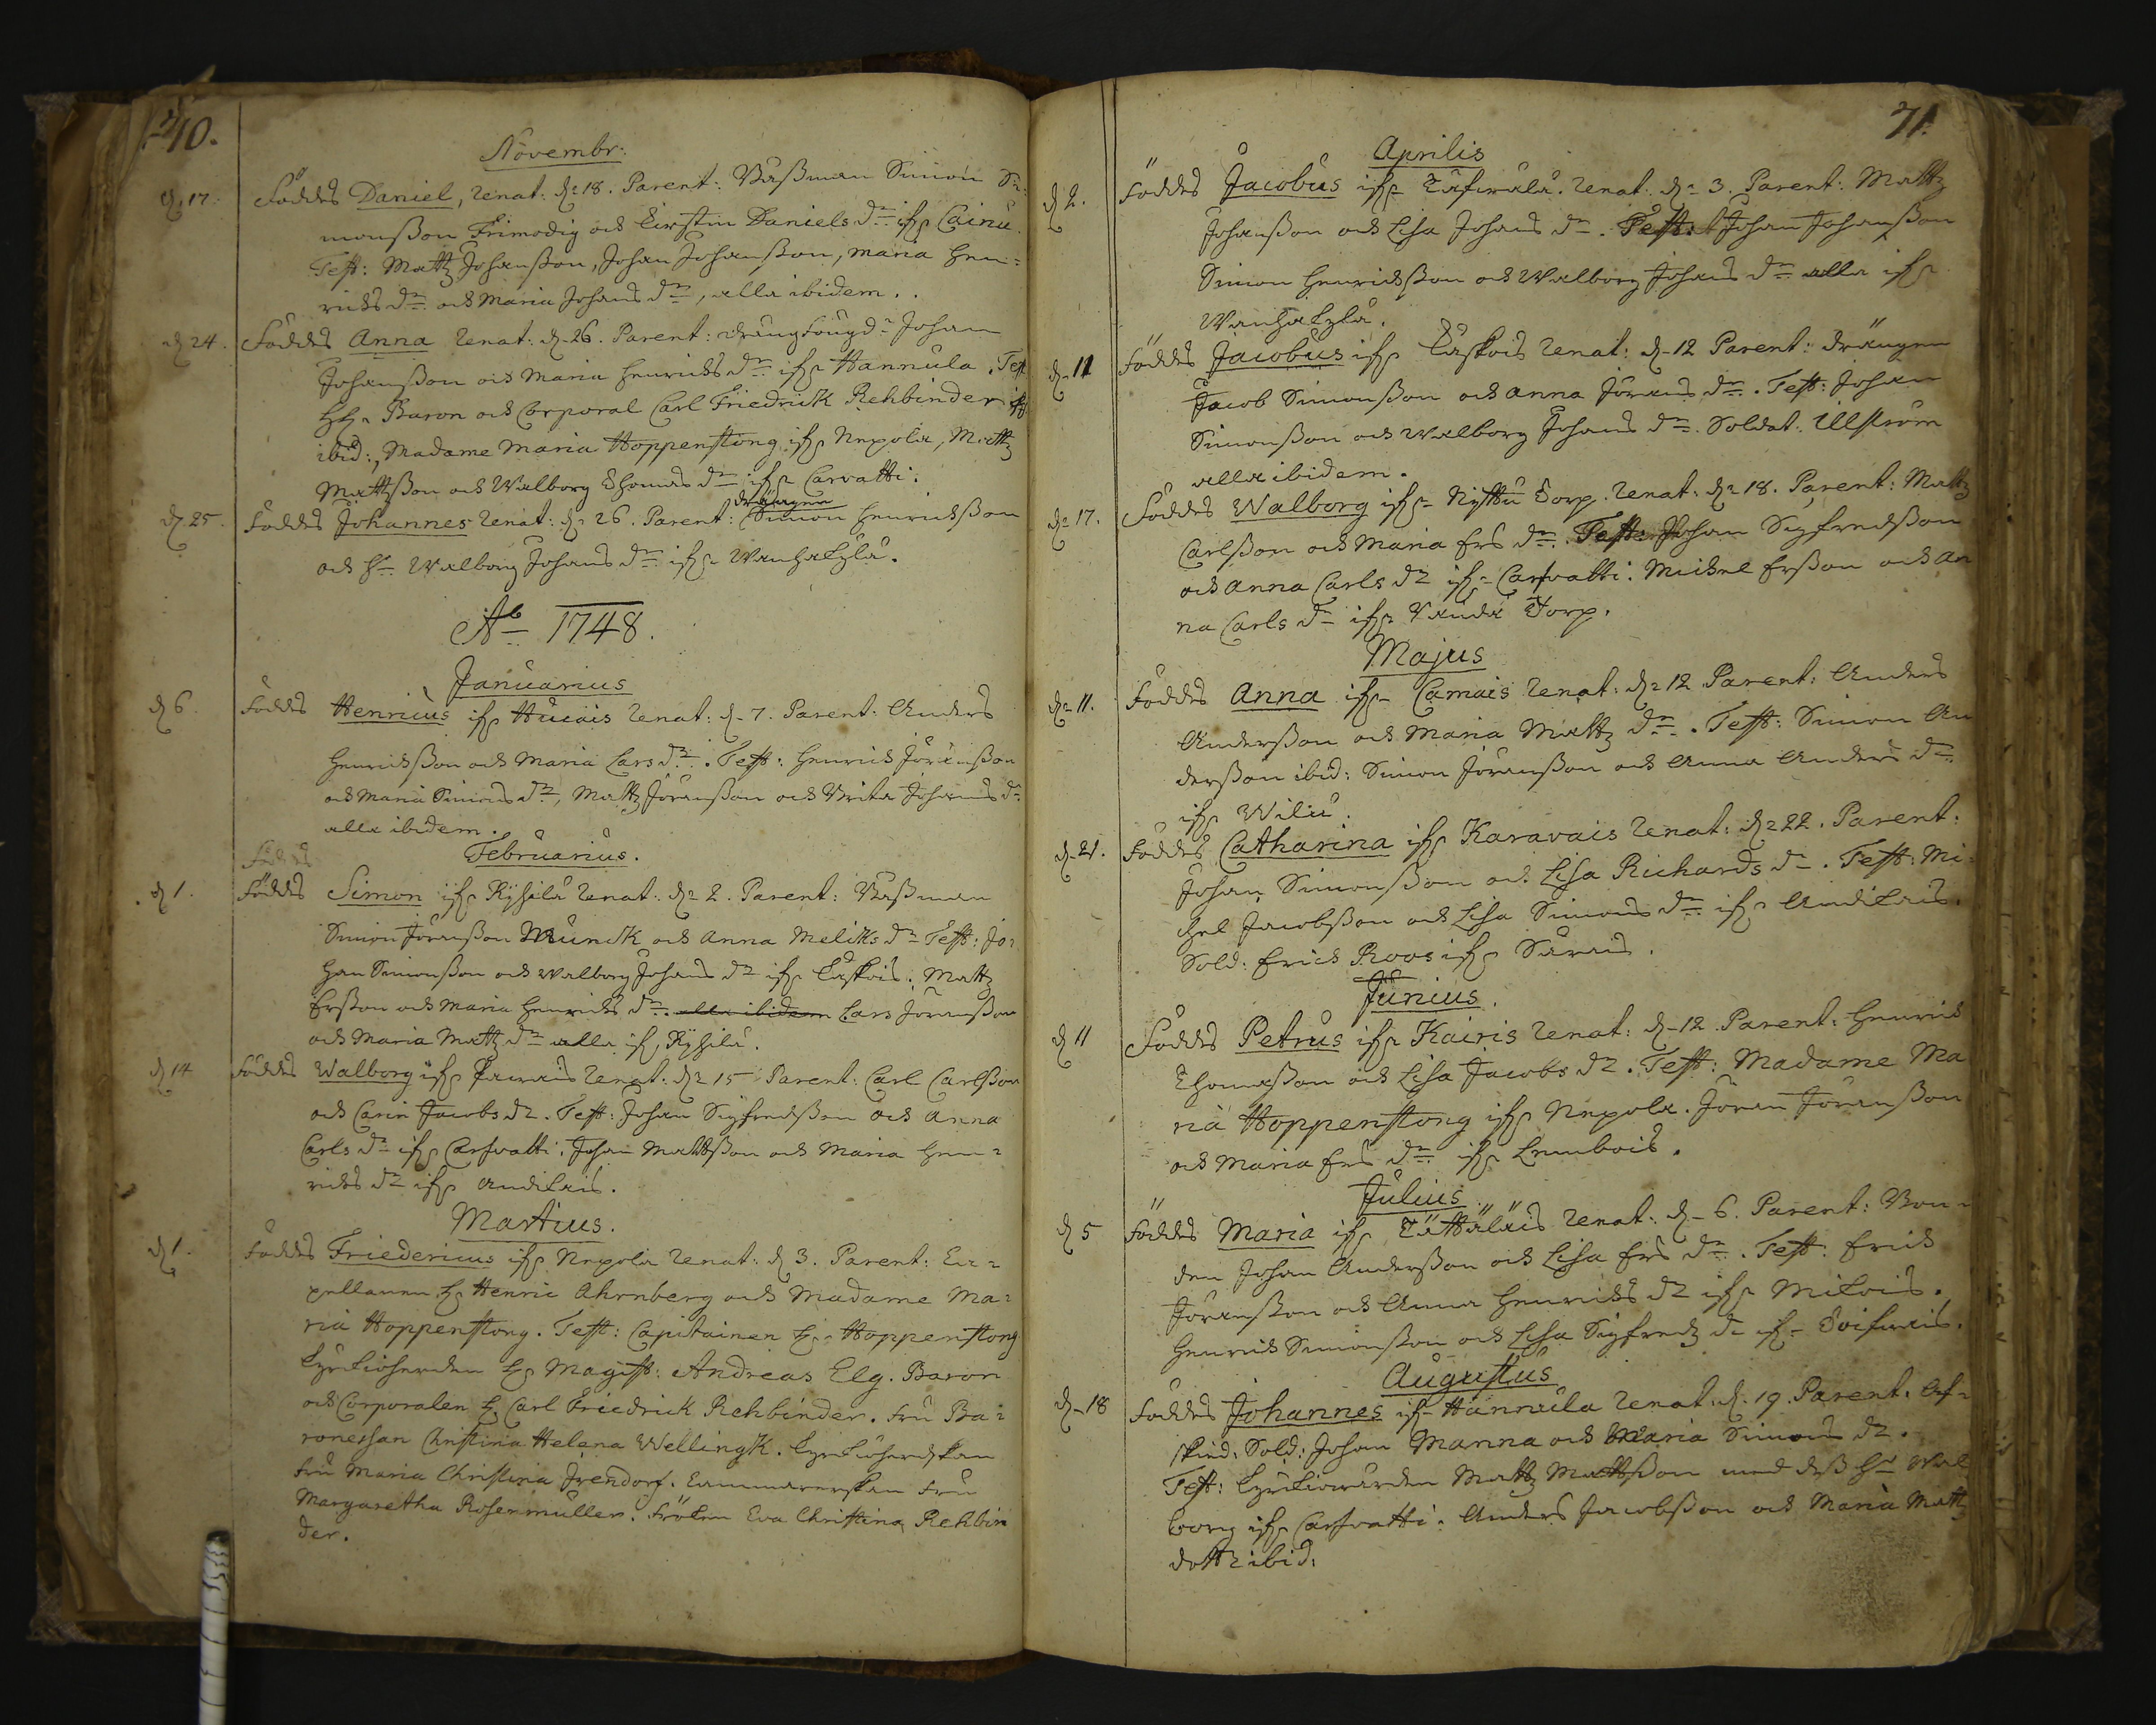 70.
Novembr:
d. 17. Föddes Daniel, renat: d. 18. Parent: Båßman Simon Si-
monßon Frimodig och Kirstin Daniels dr ifr. Cainu.
Test: Mattz Johanßon, Johan Johanßon, Maria Hen-
richs dr och Maria Johans dr, alla ibidem.
d. 24. Föddes Anna renat: d. 26. Parent: Johan
Johanßon och Maria Henrichs dr ifr. Hannula. Test
Hr. Baron och Corporal Carl Friedrick Rehbinder
ibid:, Madame Maria Hoppenstong ifr. Nepola, Mattz
Mattzßon och Walborg Thomas dr ifr. Carvatti.
drängen
d. 25. Föddes Johannes renat: d. 26. Parent: Simon Henrichßon
och h. Walborg Johans dr ifr. Wanhakylä.
Ao 1748.
Januarius
d. 6. Föddes Henricus ifr. Hucais renat: d. 7. Parent: Anders
Henrichßon och Maria Lars dr. Test: Henrich Jöranßon
och Maria Simons dr, Mattz Jöranßon och Brita Johans dr
alla ibidem.
Februarius.
d. 1. Föddes Simon ifr. Kyhilä renat: d. 2. Parent: Båßman
Simon Jöranßon Munck och Anna Melicks dr Test: Jo-
han Simonßon och Walborg Johans dr ifr. Laskois. Mattz
Erßon och Maria Henrichs dr. alla ibidem Lars Jöranßon
och Maria Mattz dr alla ifr. Kyhilä.
d. 14 Föddes Walborg ifr. renat: d. 15 Parent: Carl Carlßon
och Carin Jacobs dr. Test: Johan Sigfredßon och Anna
Carls dr ifr. Carfvatti. Johan Mattßon och Maria Hen-
richs dr ifr. Andilais.
Martius.
d. 1. Föddes Friedericus ifr. Nepola renat: d. 3. Parent: Ca-
pellanen H. Henric Ahrnberg och Madame Ma-
ria Hoppenstong. Test: Capitainen H. Hoppenstong
Kyrkioherden H. Magist: Andreas Elg. Baron
och Corporalen H. Carl Friedrick Rehbinder. Fru Ba-
ronessan Christina Helena Wellingk. Kyrkioherdskan
Fru Maria Christina Irendorf. Fru
Margaretha Rosenmüller. Fröken Eva Christina Rehbin
der.
71.
Aprilis
d. 2. Föddes Jacobus ifr. renat: d. 3. Parent: Mattz
Johanßon och Lisa Johans dr. Test: Johan Johanßon
Simon Henrichßon och Walborg Johans dr alla ifr.
Wanhakylä.
d. 11 Föddes Jacobus ifr. Laskois renat: d. 12 Parent: Drängen
Jacob Simonßon och Anna Jörans dr. Test: Johan
Simonßon och Walborg Johans dr. Soldat: Ullström
alla ibidem.
d. 17. Föddes Walborg ifr. Nyttu Torp. renat: d. 18. Parent: Mattz
Carlßon och Maria Ers dr. Test: Johan Sigfredßon
och Anna Carls dr ifr. Carfvatti. Michel Erßon och An
na Carls dr ifr. Torp.
Majus
d. 11. Föddes Anna ifr. Camais renat: d. 12 Parent: Anders
Anderßon och Maria Mattz dr. Test: Simon An
derßon ibid: Simon Jöranßon och Anna Anders dr
ifr. Wiliu.
d. 21. Föddes Catharina ifr. Karavais renat: d. 22. Parent:
Johan Simonßon och Lisa Richards dr. Test: Mi
chel Jacobßon och Lisa Simons dr ifr. Andilais.
Sold: Erich Roos ifr. Särais.
Junius.
d 11 Föddes Petrus ifr. Kairis renat: d. 12. Parent: Henrich
Thomaßon och Lisa Jacobs dr. Test: Madame Ma
ria Hoppenstong ifr. Nepola. Jöran Jöranßon
och Maria Ers dr ifr. Lembois.
Julius
d 5 Föddes Maria ifr. Tättäläis renat: d. 6. Parent: Bon-
den Johan Anderßon och Lisa Ers dr. Test: Erich
Jöranßon och Anna Henrichs dr ifr. Milois.
Henrich Simonßon och Lisa Sigfredz dr ifr. Toifwais.
Augustus
d. 18 Föddes Johannes ifr. Hannula renat: d. 19. Parent: Af-
sked: Sold: Johan Manna och Maria Simons dr.
Test: Kyrkiowärden Mattz Mattzßon med deß h. Wal
borg ifr. Carfvatti. Anders Jacobßon och Maria Mattz
dotter ibid: